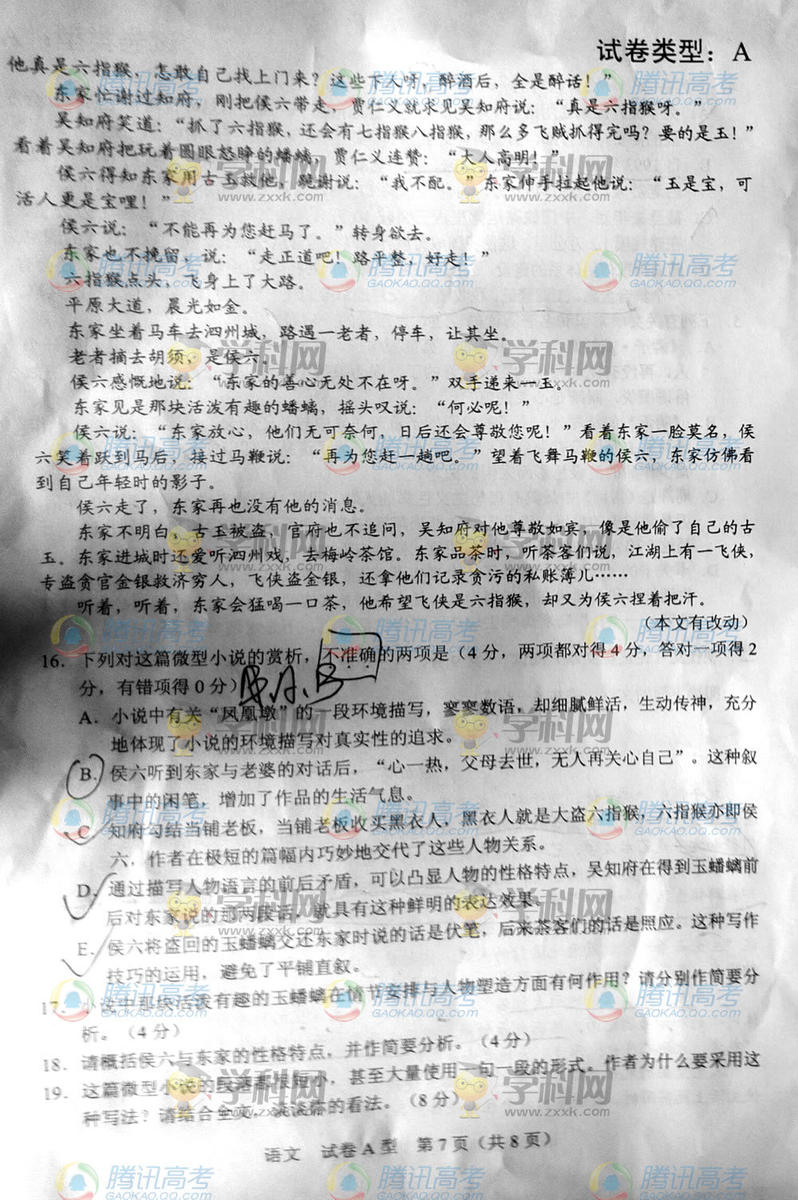 试卷类型：A
他真是六指猴，怎敢自己找上门来？这些下人呀，醉酒后，全是醉话！”
东家忙谢过知府，刚把侯六带走，贾仁义就求见吴知府说：“真是六指猴呀。”
吴知府笑道：“抓了六指猴，还会有七指猴八指猴，那么多飞贼抓得完吗？要的是玉！”
看着吴知府把玩着圆眼怒睁的蟠螭，贾仁义连赞：“大人高明！”
侯六得知东家用古玉救他，跪谢说：“我不配。”东家伸手拉起他说：“玉是宝，可
活人更是宝哩！”
侯六说：“不能再为您赶马了。”转身欲去。
东家也不挽留，说：“走正道吧！路平整，好走！”
六指猴点头，飞身上了大路。
平原大道，晨光如金。
东家坐着马车去泗州城，路遇一老者，停车，让其坐。
老者摘去胡须，是侯六。
侯六感慨地说：“东家的善心无处不在呀。”双手递来一玉。
东家见是那块活泼有趣的蟠螭，摇头叹说：“何必呢！”
侯六说：“东家放心，他们无可奈何，日后还会尊敬您呢！”看着东家一脸莫名，侯
六笑着跃到马后，接过马鞭说：“再为您赶一趟吧。”望着飞舞马鞭的侯六，东家仿佛看
到自己年轻时的影子。
侯六走了，东家再也没有他的消息。
东家不明白，古玉被盗，官府也不追问，吴知府对他尊敬如宾，像是他偷了自己的古
玉。东家进城时还爱听泗州戏，去梅岭茶馆。东家品茶时，听茶客们说，江湖上有一飞侠，
专盗贪官金银救济穷人，飞侠盗金银，还拿他们记录贪污的私账薄儿……
听着，听着，东家会猛喝一口茶，他希望飞侠是六指猴，却又为侯六捏着把汗。
（本文有改动）
16．下列对这篇微型小说的赏析，不准确的两项是（4分，两项都对得4分，答对一项得2
分，有错项得0分）
A．小说中有关“凤凰墩”的一段环境描写，寥寥数语，却细腻鲜活，生动传神，充分
地体现了小说的环境描写对真实性的追求。
B．侯六听到东家与老婆的对话后，“心一热，父母去世，无人再关心自己”。这种叙
事中的闲笔，增加了作品的生活气息。
C．知府勾结当铺老板，当铺老板收买黑衣人，黑衣人就是大盗六指猴，六指猴亦即侯
六，作者在极短的篇幅内巧妙地交代了这些人物关系。
D．通过描写人物语言的前后矛盾，可以凸显人物的性格特点，吴知府在得到玉蟠螭前
后对东家说的那两段话，就具有这种鲜明的表达效果。
E．侯六将盗回的玉蟠螭交还东家时说的话是伏笔，后来茶客们的话是照应。这种写作
技巧的运用，避免了平铺直叙。
17．小说中那块活泼有趣的玉蟠螭在情节安排与人物塑造方面有何作用？请分别作简要分
析。（4分）
18．请概括侯六与东家的性格特点，并作简要分析。（4分）
19．这篇微型小说的段落都很短小，甚至大量使用一句一段的形式。作者为什么要采用这
种写法？请结合全文，谈谈你的看法。（8分）
语文 试卷A型 第7页（共8页）
腾讯高考
GAOKAO.QQ.COM
学科网
www.zxxk.com